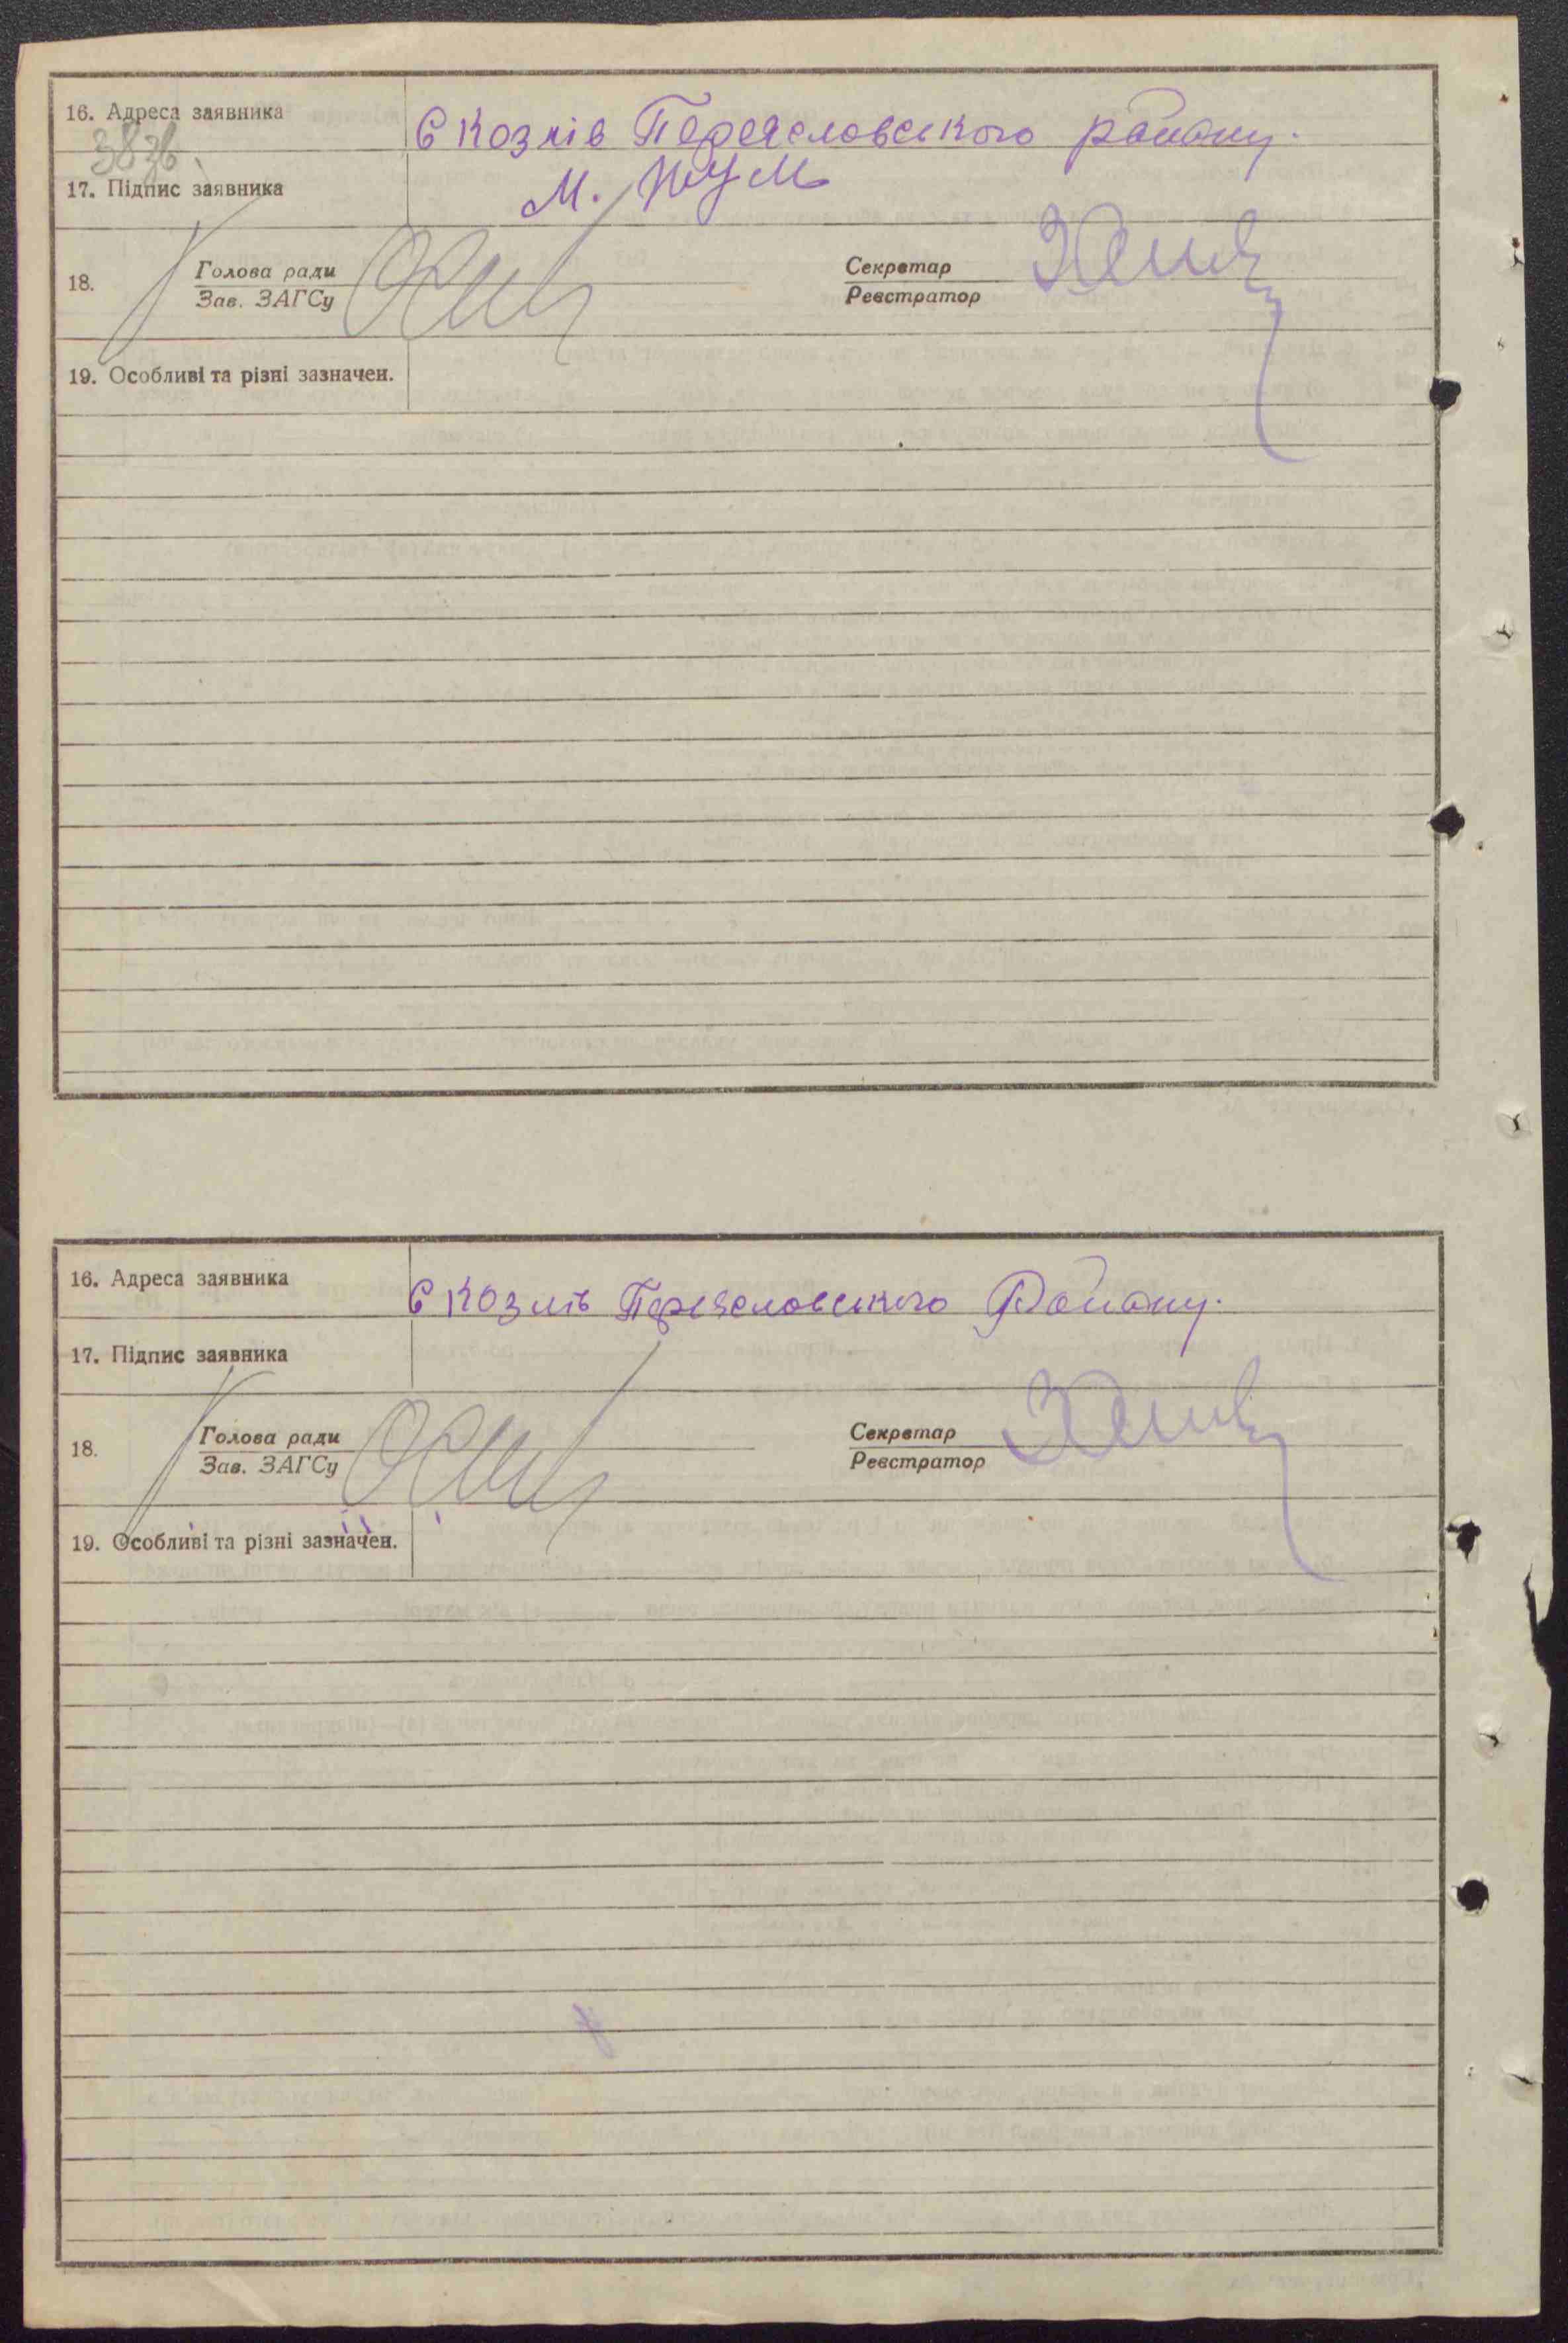 16. Адреса заявника С Козлів Переясловського району.
38зв
17. Підпис заявника
18. Голова ради Секретар
Зав. ЗАГСу Реєстратор
19. Особливі та різні зазначен.
16. Адреса заявника С Козлів Переясловського Району.
17. Підпис заявника
18. Голова ради Секретар
Зав. ЗАГСу Реєстратор
19. Особливі та різні зазначен.